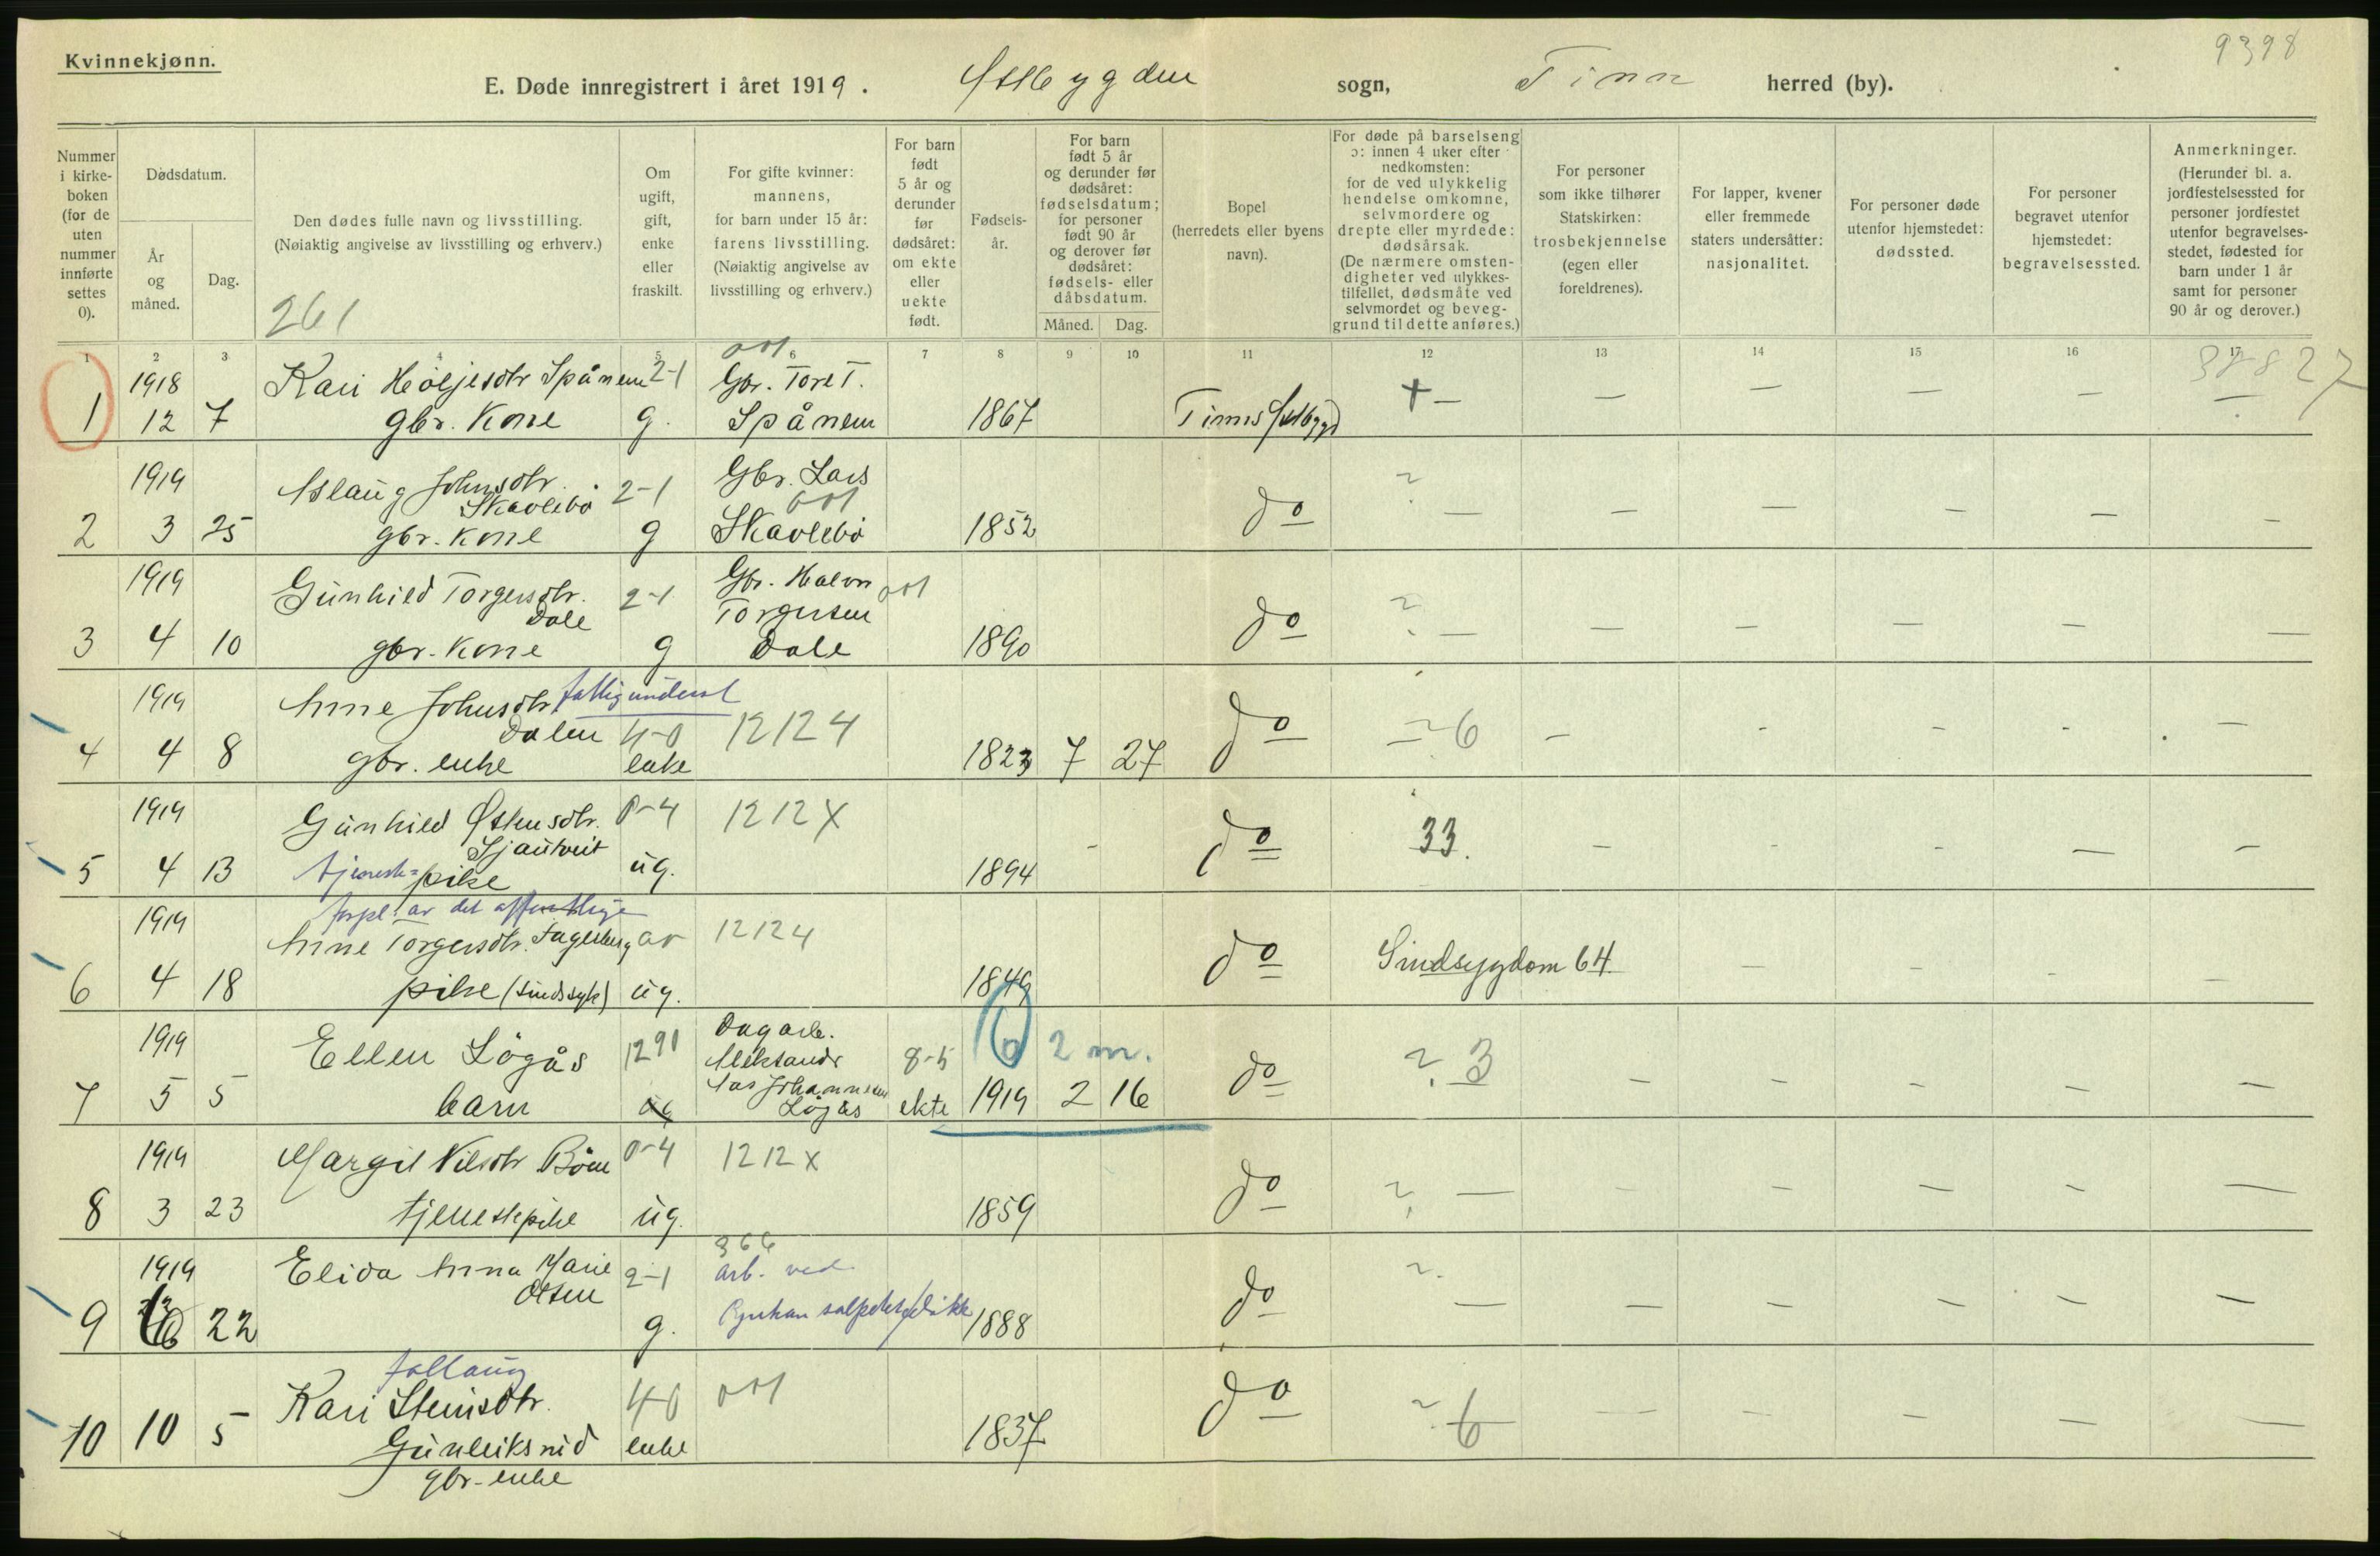 9398
Kvinnekjønn.
E. Døde innregistrert i året 1919. Østbygden sogn, Tinn herred (by).
Nummer i kirke-boken (for de uten nummer innførte settes 0).
Dødsdatum.
År og måned.
Dag.
Den dødes fulle navn og livsstilling.
(Nøiaktig angivelse av livsstilling og erhverv.)
261
Om ugift, gift, enke eller fraskilt.
For gifte kvinner: mannens, for barn under 15 år: farens livsstilling.
(Nøiaktig angivelse av livsstilling og erhverv.)
For barn født 5 år og derunder før dødsåret: om ekte eller uekte født.
Fødsels-år.
For barn født 5 år og derunder før dødsåret: fødselsdatum; for personer født 90 år og derover før dødsåret: fødsels- eller dåbsdatum.
Måned.
Dag.
Bopel (herredets eller byens navn).
For døde på barselseng ɔ: innen 4 uker efter nedkomsten: for de ved ulykkelig hendelse omkomne, selvmordere og drepte eller myrdede: dødsårsak.
(De nærmere omsten-digheter ved ulykkes-tilfellet, dødsmåte ved selvmordet og beveg-grund til dette anføres.)
For personer som ikke tilhører Statskirken: trosbekjennelse (egen eller foreldrenes).
For lapper, kvener eller fremmede staters undersåtter: nasjonalitet.
For personer døde utenfor hjemstedet: dødssted.
For personer begravet utenfor hjemstedet: begravelsessted.
Anmerkninger.
(Herunder bl. a. jordfestelsessted for personer jordfestet utenfor begravelses-stedet, fødested for barn under 1 år samt for personer 90 år og derover.)
1 2 3 4 5 6 7 8 9 10 11 12 13 14 15 16 17
1918 Kari Høljesdtr Spånem 2-1 001 Gbr. Tore T. + — — — — — 38827
1 12 7 gbr. kone g. Spånem 1867 Tinns Østbygd
1919 Aslaug Johnsdtr. Skavlebø 2-1 Gbr. Lars 001 ?
2 3 25 gbr. kone g Skavlebø 1852 do — — — — — —
1919 Gunhild Torgersdtr. Dale 2-1 Gbr. Halvor Torgersen 001 ?
3 4 10 gbr. kone g Dale 1890 do — — — — — —
1919 Anne Johnsdtr. fattigunderst Dalen 4-0 12124 — ? 6
4 4 8 gbr. enke enke 1823 7 27 do — - - - —
1919 Gunhild Østensdtr. Sjautveit 0-4 1212X 33.
5 4 13 tjeneste=pike ug. 1894 - do — - - — —
forpl. av det offentlige
1919 Anne Torgersdtr. Fagerberg 12124 Sindsygdom 64.
6 4 18 pike (sindssyk) ug. 1849 do — - - —
1919 Ellen Løgås 1291 Dagarb. Aleksander 8-5 6 2 m. ? 3
7 5 5 barn Johannessen Løgås ekte 1919 2 16 do — — — — —
1919 Margit Nilsdtr Bøen 0-4 1212X ?
8 3 23 tjenestepike ug. 1859 do — — — — — —
1919 Elida Anna Marie Olsen 2-1 366 arb. ved ?
9 22 g. Rjukan salpeterfabrikk 1888 do — — — — — —
Kari Steinsdtr. 40 001 ? 6
10 10 5 Gunleiksrud enke 1837 do — — — — —
gbr-enke